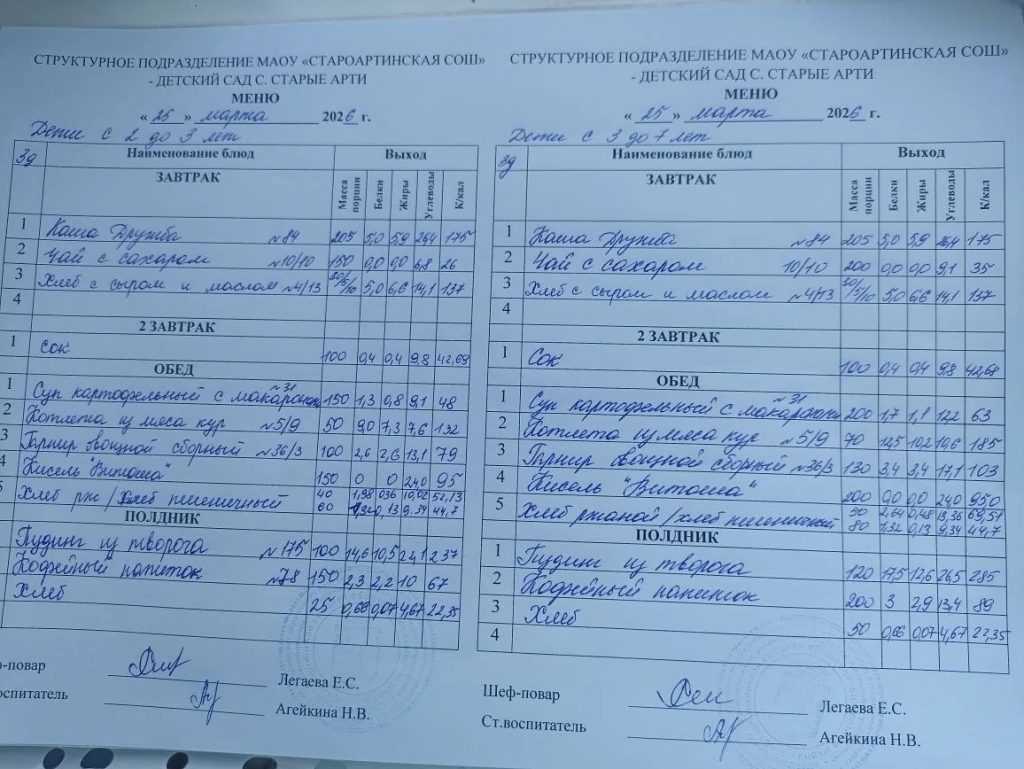 СТРУКТУРНОЕ ПОДРАЗДЕЛЕНИЕ МАОУ «СТАРОАРТИНСКАЯ СОШ»
- ДЕТСКИЙ САД С. СТАРЫЕ АРТИ
МЕНЮ
« 25 » марта 2026 г.
Дети с 2 до 3 лет
3д Наименование блюд Выход
ЗАВТРАК Масса порции Белки Жиры Углеводы К/кал
1 Каша Дружба №84 205 5,0 5,9 26,4 175
2 Чай с сахаром №10/10 150 0,0 0,0 6,8 26
3 Хлеб с сыром и маслом №4/13 30/5/10 5,0 6,6 14,1 137
4
2 ЗАВТРАК
1 Сок 100 0,4 0,4 9,8 42,68
ОБЕД
1 Суп картофельный с макаронами №31 150 1,3 0,8 9,1 48
2 Котлета из мяса кур №5/9 50 9,0 7,3 7,6 132
3 Гарнир овощной сборный №36/3 100 2,6 2,6 13,1 79
4 Кисель "Витоша" 150 0 0 24,0 95
5 Хлеб рж/хлеб пшеничный 40 1,98 0,36 10,02 52,13
60 1,32 0,13 9,34 44,7
ПОЛДНИК
Пудинг из творога №175 100 14,6 10,5 22,1 237
Кофейный напиток №78 150 2,3 2,2 10 67
Хлеб 25 0,66 0,07 4,67 22,35
ф-повар Легаева Е.С.
оспитатель Агейкина Н.В.
СТРУКТУРНОЕ ПОДРАЗДЕЛЕНИЕ МАОУ «СТАРОАРТИНСКАЯ СОШ»
- ДЕТСКИЙ САД С. СТАРЫЕ АРТИ
МЕНЮ
« 25 » марта 2026 г.
Дети с 3 до 7 лет
3д Наименование блюд Выход
ЗАВТРАК Масса порции Белки Жиры Углеводы К/кал
1 Каша Дружба №84 205 5,0 5,9 26,4 175
2 Чай с сахаром 10/10 200 0,0 0,0 9,1 35
3 Хлеб с сыром и маслом №4/13 30/5/10 5,0 6,6 14,1 137
4
2 ЗАВТРАК
1 Сок 100 0,4 0,4 9,8 42,68
ОБЕД
1 Суп картофельный с макаронами №31 200 1,7 1,1 12,2 63
2 Котлета из мяса кур №5/9 70 12,5 10,2 10,6 185
3 Гарнир овощной сборный №36/3 130 3,4 3,4 17,1 103
4 Кисель "Витоша" 200 0,0 0,0 24,0 95,0
5 Хлеб ржаной/хлеб пшеничный 50 2,64 0,48 13,36 69,51
80 1,32 0,13 9,34 44,7
ПОЛДНИК
1 Пудинг из творога 120 17,5 12,6 26,5 285
2 Кофейный напиток 200 3 2,9 13,4 89
3 Хлеб 50 0,66 0,07 4,67 22,35
4
Шеф-повар Легаева Е.С.
Ст.воспитатель Агейкина Н.В.